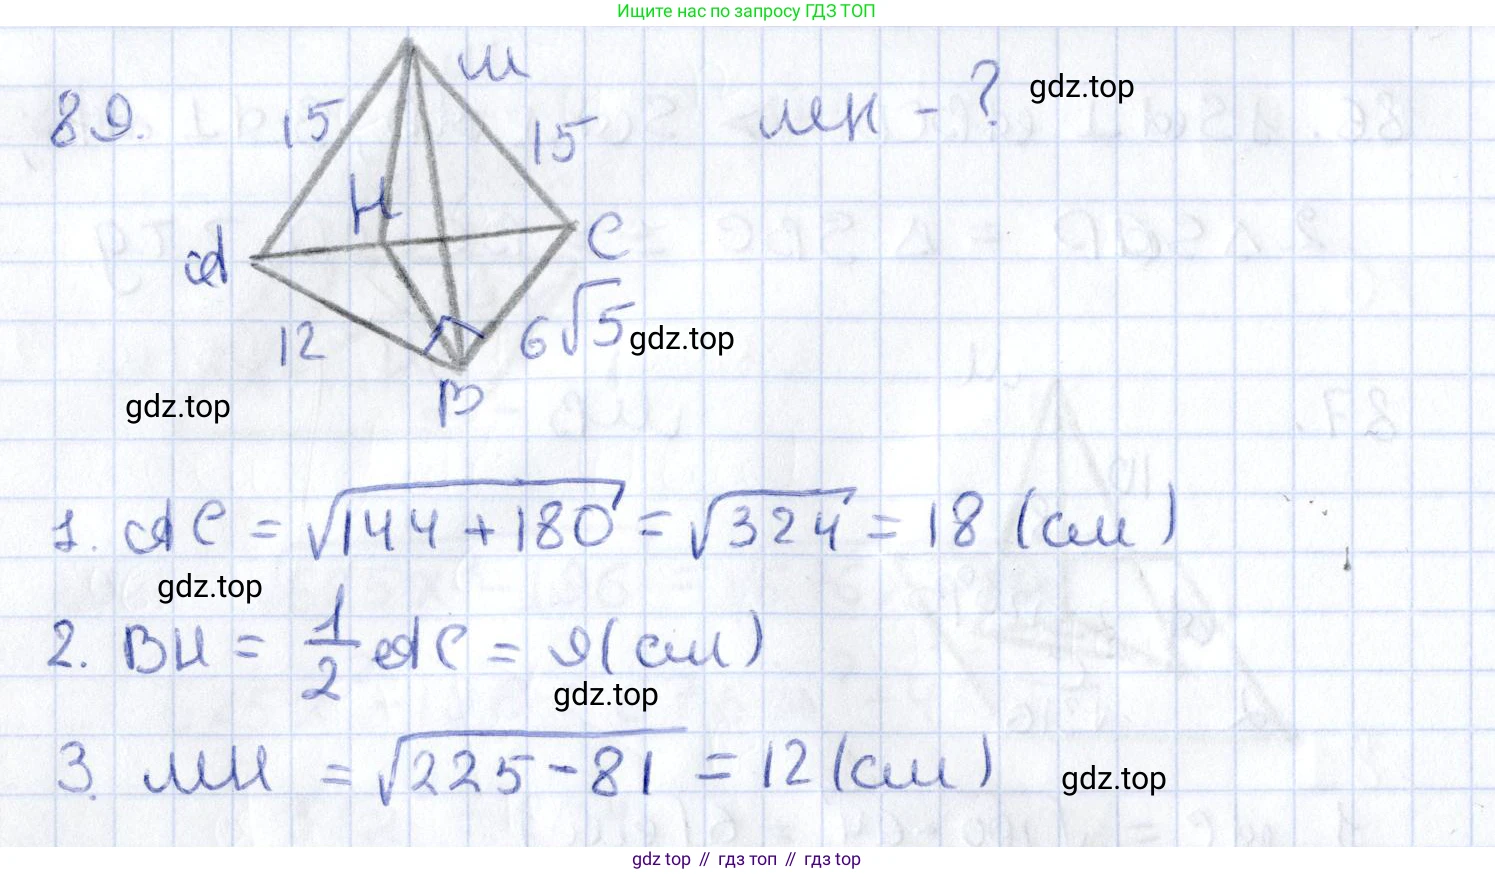 Ищите нас по запросу ГДЗ ТОП
89.
M
15
15
MH - ?
gdz.top
H
A
C
12
6√5
gdz.top
B
gdz.top
1. AC = √144 + 180 = √324 = 18 (см)
gdz.top
2. BH = 1/2 AC = 9 (см)
gdz.top
3. MH = √225 - 81 = 12 (см)
gdz.top
gdz top // гдз топ // гдз top